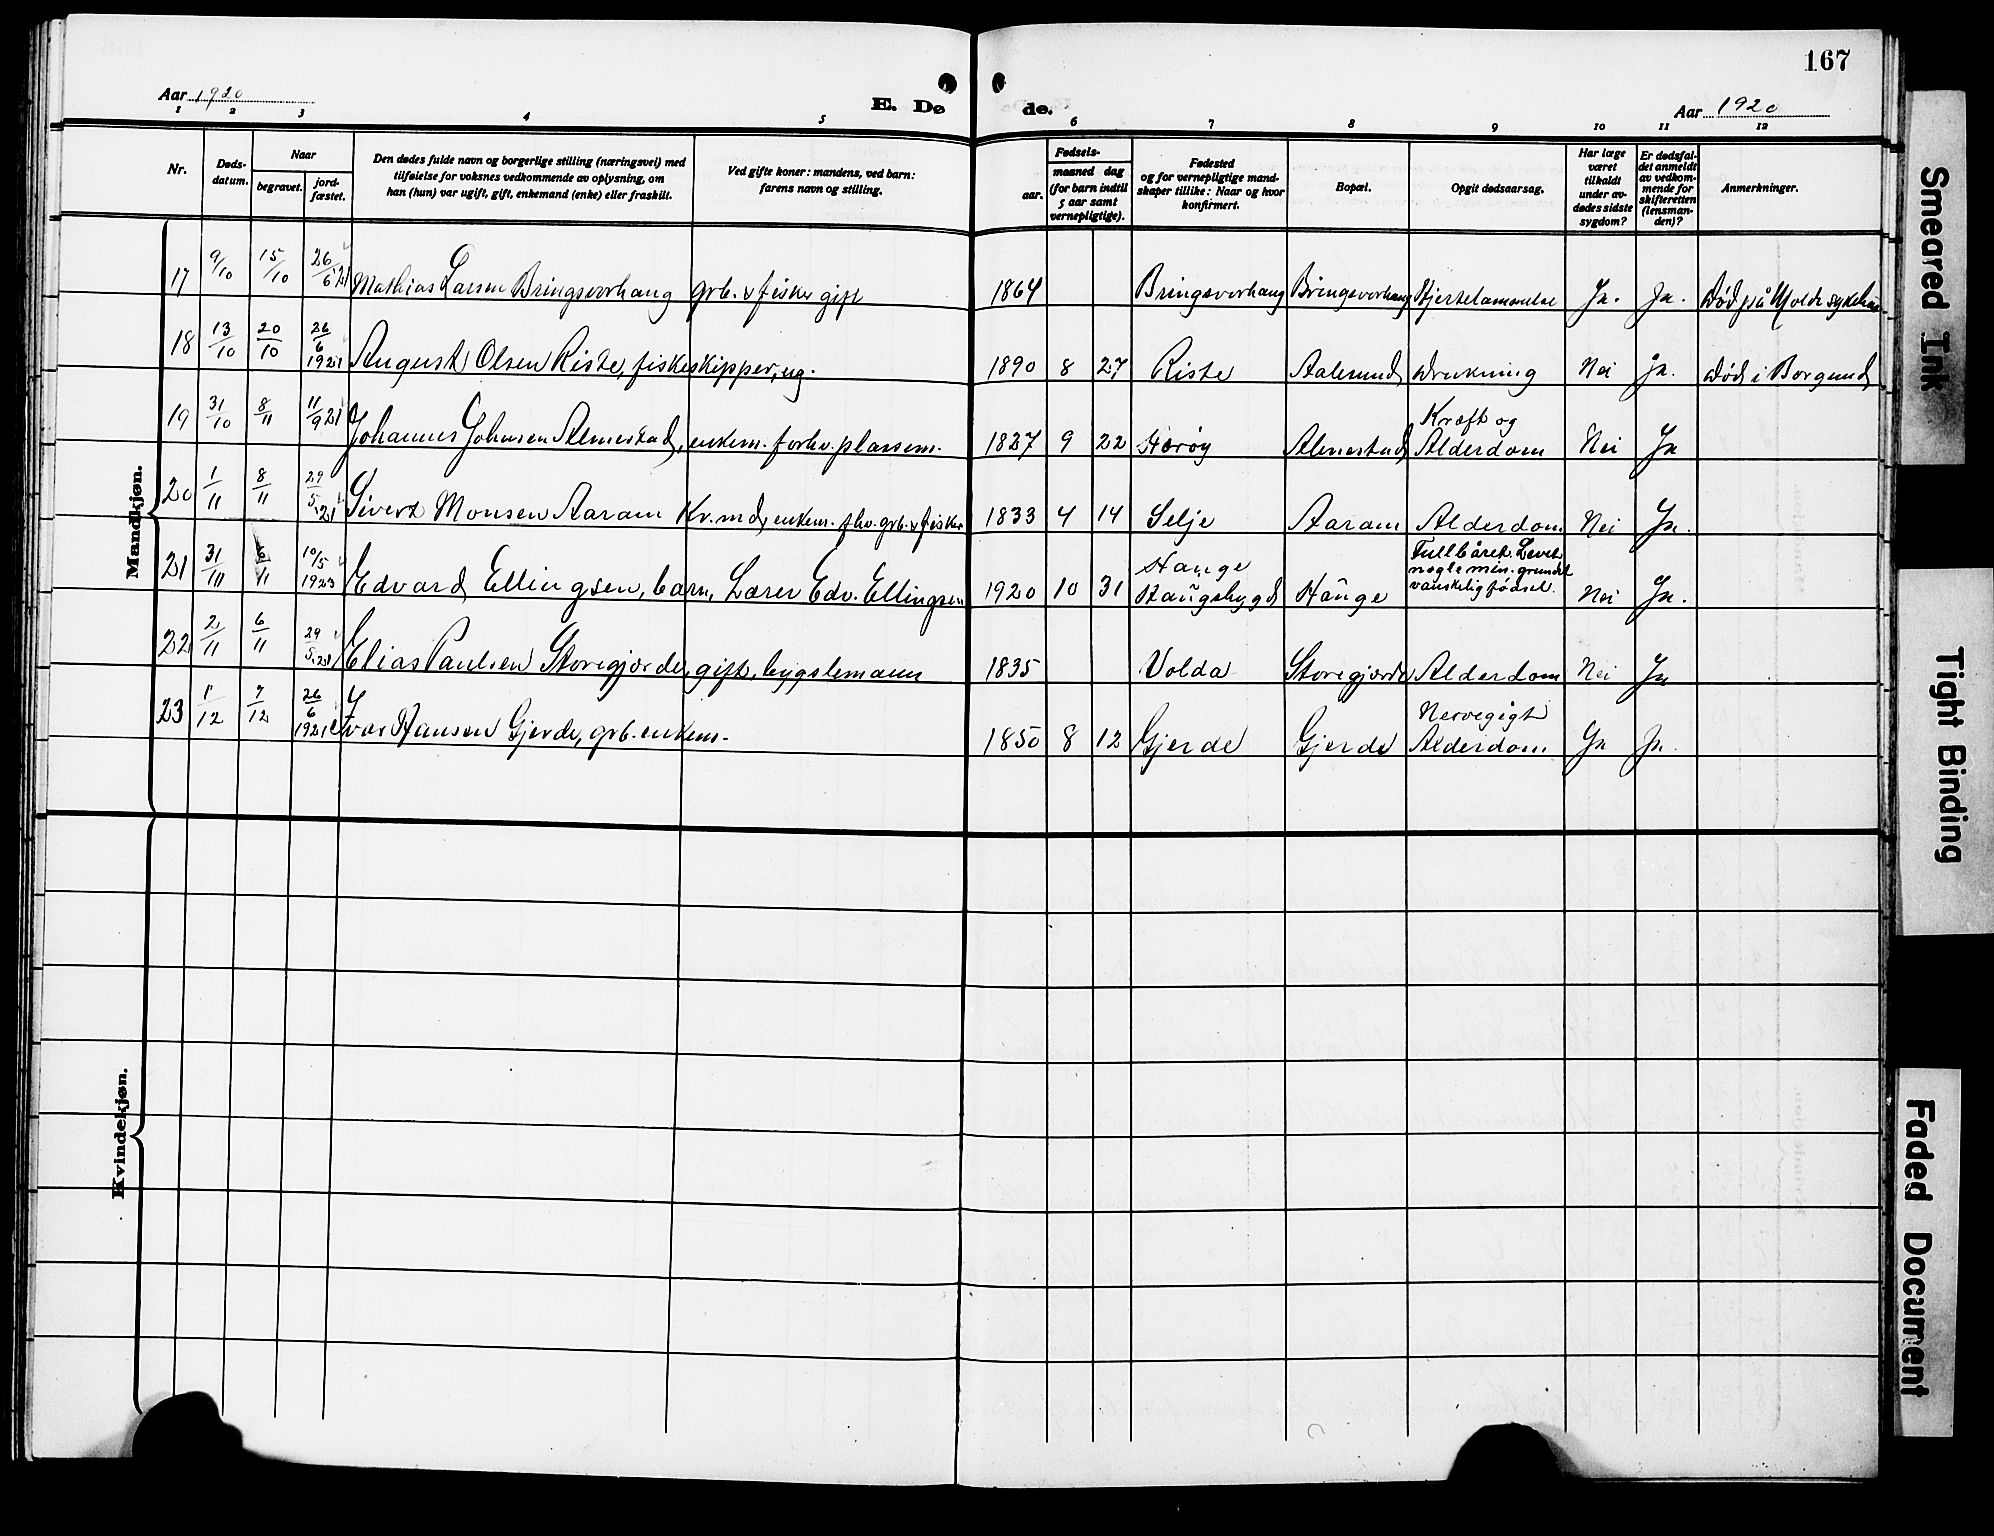 167
Aar 1920
E. Dø
de.
Aar 1920
1 2 3 4 5 6 7 8 9 10 11 12
Nr.
Døds-
datum.
Naar
begravet.
jord-
fæstet.
Den dødes fulde navn og borgerlige stilling (næringsvei) med
tilføielse for voksnes vedkommende av oplysning, om
han (hun) var ugift, gift, enkemand (enke) eller fraskilt.
Ved gifte koner: mandens, ved barn:
farens navn og stilling.
Fødsels-
aar.
maaned dag
(for barn indtil
5 aar samt
vernepligtige).
Fødested
og for vernepligtige mand-
skaper tillike: Naar og hvor
konfirmert.
Bopæl.
Opgit dødsaarsag.
Har læge
været
tilkaldt
under av-
dødes sidste
sygdom?
Er dødsfal-
det anmeldt
av vedkom-
mende for
skifteretten
(lensman-
den)?
Anmerkninger.
Mandkjøn.
17 9/10 15/10 26/6 21 Mathias Larsen Bringsvorhaug grb. & fisker gift 1864 Bringsvorhaug Bringsvorhaug Hjertelammelse Ja. Ja. Død på Molde sykehus
18 13/10 20/10 26/6 1921 August Olsen Riste, fiskeskipper, ug. 1890 8 27 Riste Aalesund Drukning Nei Ja. Død i Borgund
19 31/10 8/11 11/9 21 Johannes Johnsen Almestad, enkem. forhv. plassem. 1827 9 22 Herøy Almestad Kræft og
Alderdom Nei Ja
20 1/11 8/11 29/5 21 Sivert Monsen Aaram Kr.md, enkem. fhv. grb. & fisker 1833 4 14 Selje Aaram Alderdom Nei Ja.
21 31/10 /11 10/5 1923 Edvard Ellingsen, barn, Lærer Edv. Ellingsen 1920 10 31 Hauge
Haugsbygd Hauge Fullbåret. Levet
nogle min. grundet
vanskelig fødsel. Nei Ja.
22 2/11 6/11 29/5 21 Elias Paulsen Storegjerde, gift, bygslemann 1835 Volda Storegjerde Alderdom Nei Ja
23 1/12 7/12 26/6 1921 Ivar Hansen Gjerde, grb. enkem. 1850 8 12 Gjerde Gjerde Nervegigt
Alderdom Ja Ja.
Kvindekjøn.
Smeared Ink
Tight Binding
Faded Document